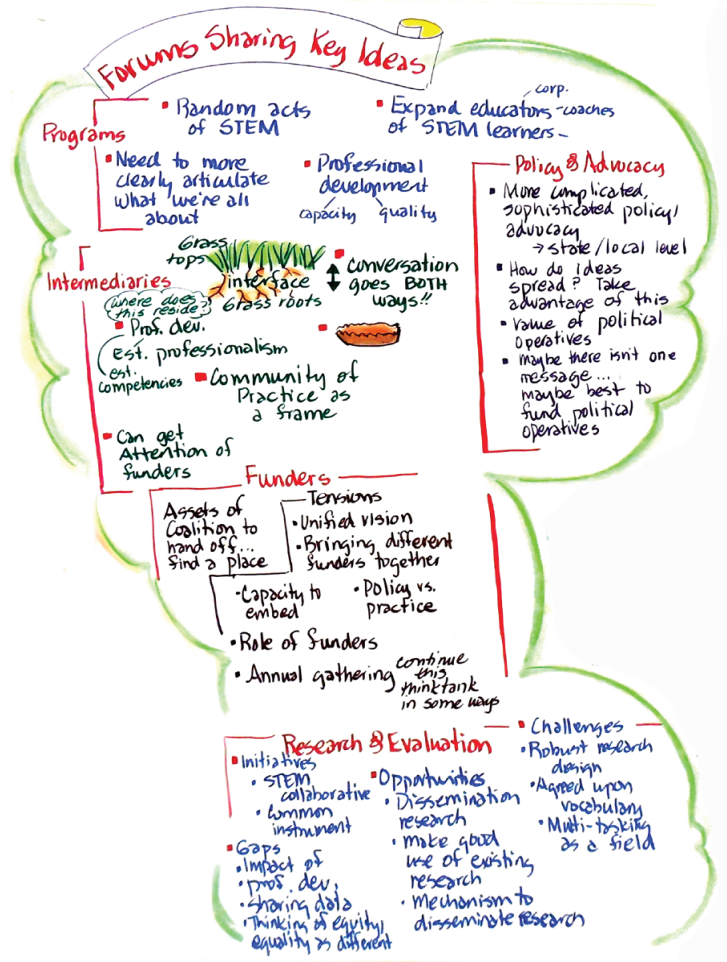 Forums Sharing Key Ideas
Programs
Random acts
of STEM
corp.
Expand educators - coaches
of STEM learners -
Need to more
clearly articulate
what we're all
about
Professional
development
capacity quality
Policy & Advocacy
More complicated,
sophisticated policy/
advocacy
→ state/local level
How do ideas
spread? Take
advantage of this
value of political
operatives
maybe there isn't one
message...
maybe best to
fund political
operatives
Intermediaries
Grass
tops
interface
Grass roots
conversation
goes BOTH
ways!!
where does
this reside?
Prof. dev.
Est. professionalism
est.
competencies
Community of
Practice as
a frame
Can get
Attention of
funders
Funders
Assets of
Coalition to
hand off...
find a place
Tensions
Unified vision
Bringing different
funders together
Capacity to
embed
Policy vs.
practice
Role of funders
Annual gathering
continue
this
thinktank
in some ways
Research & Evaluation
Initiatives
STEM
collaborative
Common
instrument
Gaps
Impact of
prof. dev.
sharing data
Thinking of equity,
equality as different
Opportunities
Dissemination
research
make good
use of existing
research
Mechanism to
disseminate research
Challenges
Robust research
design
Agreed upon
vocabulary
Multi-tasking
as a field